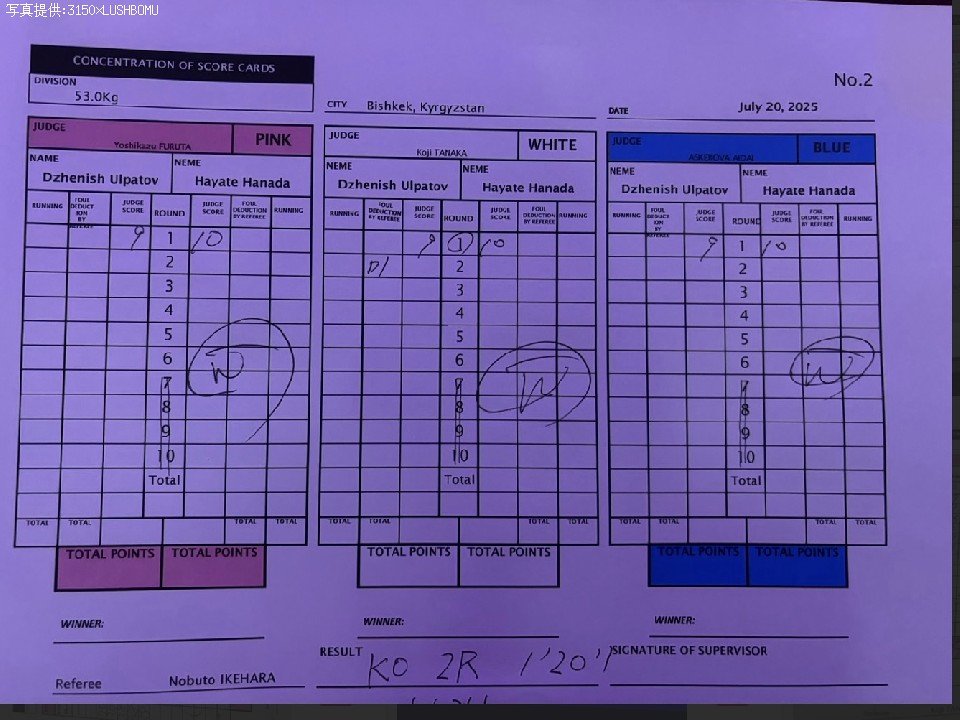 写真提供:3150×LUSHBOMU
CONCENTRATION OF SCORE CARDS
DIVISION
53.0Kg
No.2
CITY Bishkek, Kyrgyzstan
DATE July 20, 2025
JUDGE
Yoshikazu FURUTA
PINK
NAME
Dzhenish Ulpatov
NEME
Hayate Hanada
RUNNING FOUL DEDUCTION BY REFEREE JUDGE SCORE ROUND JUDGE SCORE FOUL DEDUCTION BY REFEREE RUNNING
9 1 10
2
3
4
5
6 W
7
8
9
10
Total
TOTAL TOTAL TOTAL TOTAL
TOTAL POINTS TOTAL POINTS
WINNER:
JUDGE
Koji TANAKA
WHITE
NEME
Dzhenish Ulpatov
NEME
Hayate Hanada
RUNNING FOUL DEDUCTION BY REFEREE JUDGE SCORE ROUND JUDGE SCORE FOUL DEDUCTION BY REFEREE RUNNING
9 1 10
2
3
4
5
6
7 W
8
9
10
Total
TOTAL TOTAL TOTAL TOTAL
TOTAL POINTS TOTAL POINTS
WINNER:
JUDGE
BLUE
NEME
Dzhenish Ulpatov
NEME
Hayate Hanada
RUNNING FOUL DEDUCTION BY REFEREE JUDGE SCORE ROUND JUDGE SCORE FOUL DEDUCTION BY REFEREE RUNNING
9 1 10
2
3
4
5
6 W
7
8
9
10
Total
TOTAL TOTAL TOTAL TOTAL
TOTAL POINTS TOTAL POINTS
WINNER:
Referee Nobuto IKEHARA
RESULT KO 2R 1'20"
SIGNATURE OF SUPERVISOR